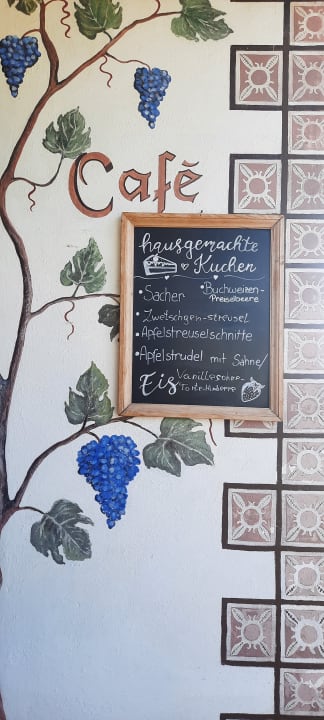 Café
hausgemachte
Kuchen
• Sacher
• Buchweizen-
Preiselbeere
• Zwetschgen-streusel
• Apfelstreuselschnitte
• Apfelstrudel mit Sahne/
Eis